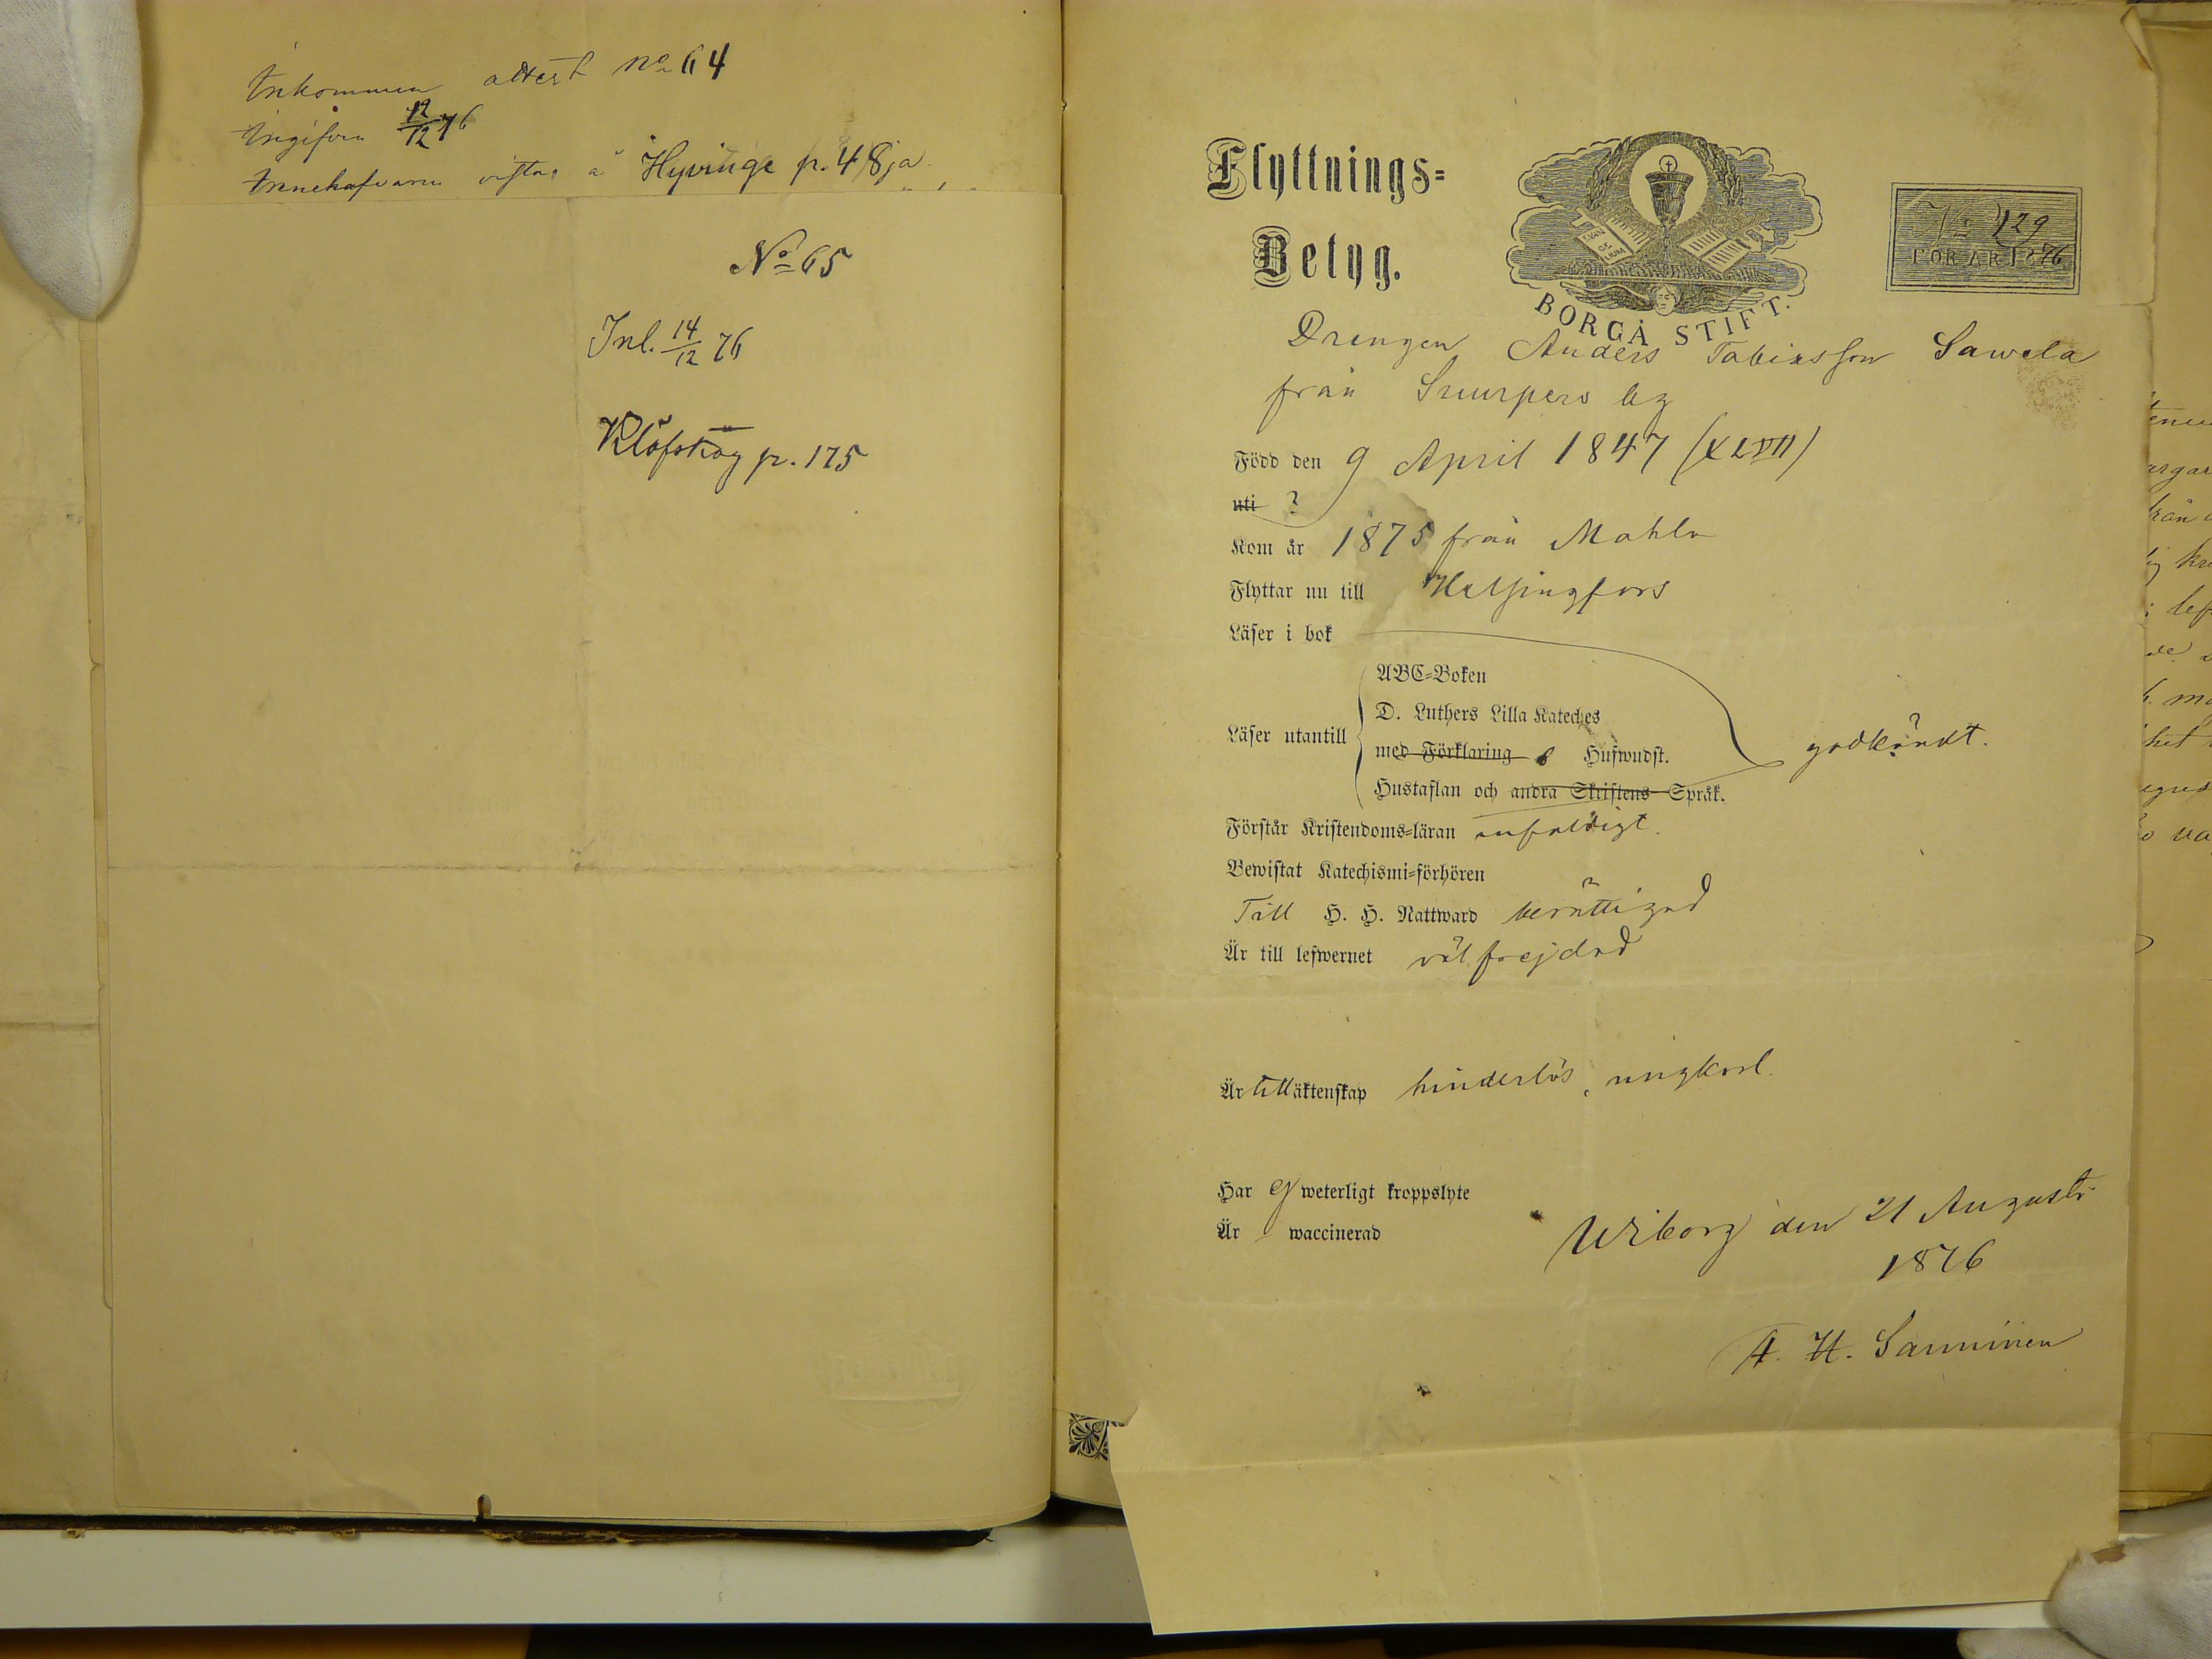 Inkommen attest No 64
Ingifven 12/12 76
Innehafvaren vistas å Hyvinge p. 48 ja
No 65
Inl. 14/12 76
Klöfskog p. 175
Flyttnings=
Betyg.
EVAN
GE
LIUM
BORGÅ STIFT.
No 129
FÖR ÅR 1876
Drengen Anders Tobiasson Sawela
från Suurpero by
Född den 9 April 1847 (XLVII)
uti ?
Kom år 1875 från Mohla
Flyttar nu till Helsingfors
Läser i bok
ABC=Boken
D. Luthers Lilla Kateches
Läser utantill
med Förklaring Hufwudst.
godkändt.
Hustaflan och andra Skriftens Språk.
Förstår Kristendoms=läran enfaldigt.
Bewistat Katechismi=förhören
Till H. H. Nattward berättigad
Är till lefwernet väl frejdad
Är till äktenskap hinderlös, ungkarl.
Har ej weterligt kroppslyte
Är waccinerad
Wiborg den 21 Augusti
1876